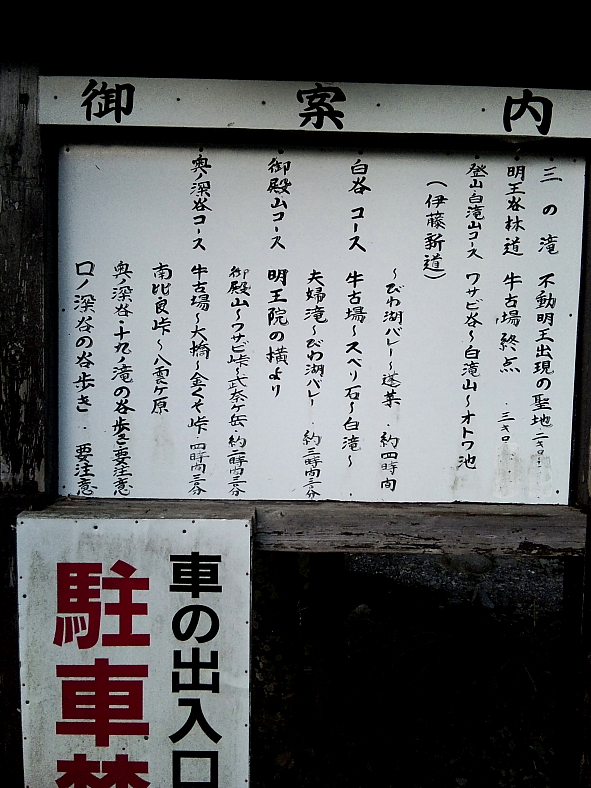 御案内
三の滝 不動明王出現の聖地 二キロ
明王谷林道 牛古場終点 三キロ
登山・白滝山コース ワサビ谷〜白滝山〜オトワ池
(伊藤新道)
〜びわ湖バレー〜蓬莱 約四時間
白谷コース 牛古場〜スベリ石〜白滝〜
夫婦滝〜びわ湖バレー 約三時間三分
御殿山コース 明王院の横より
御殿山〜ワサビ峠〜武奈ヶ岳 約二時間三分
奥ノ深谷コース 牛古場〜大橋〜金くそ峠 四時間三分
南比良峠〜八雲ヶ原
奥ノ深谷・十九ノ滝の谷歩き・要注意
口ノ深谷の谷歩き・要注意
車の出入口
駐車禁